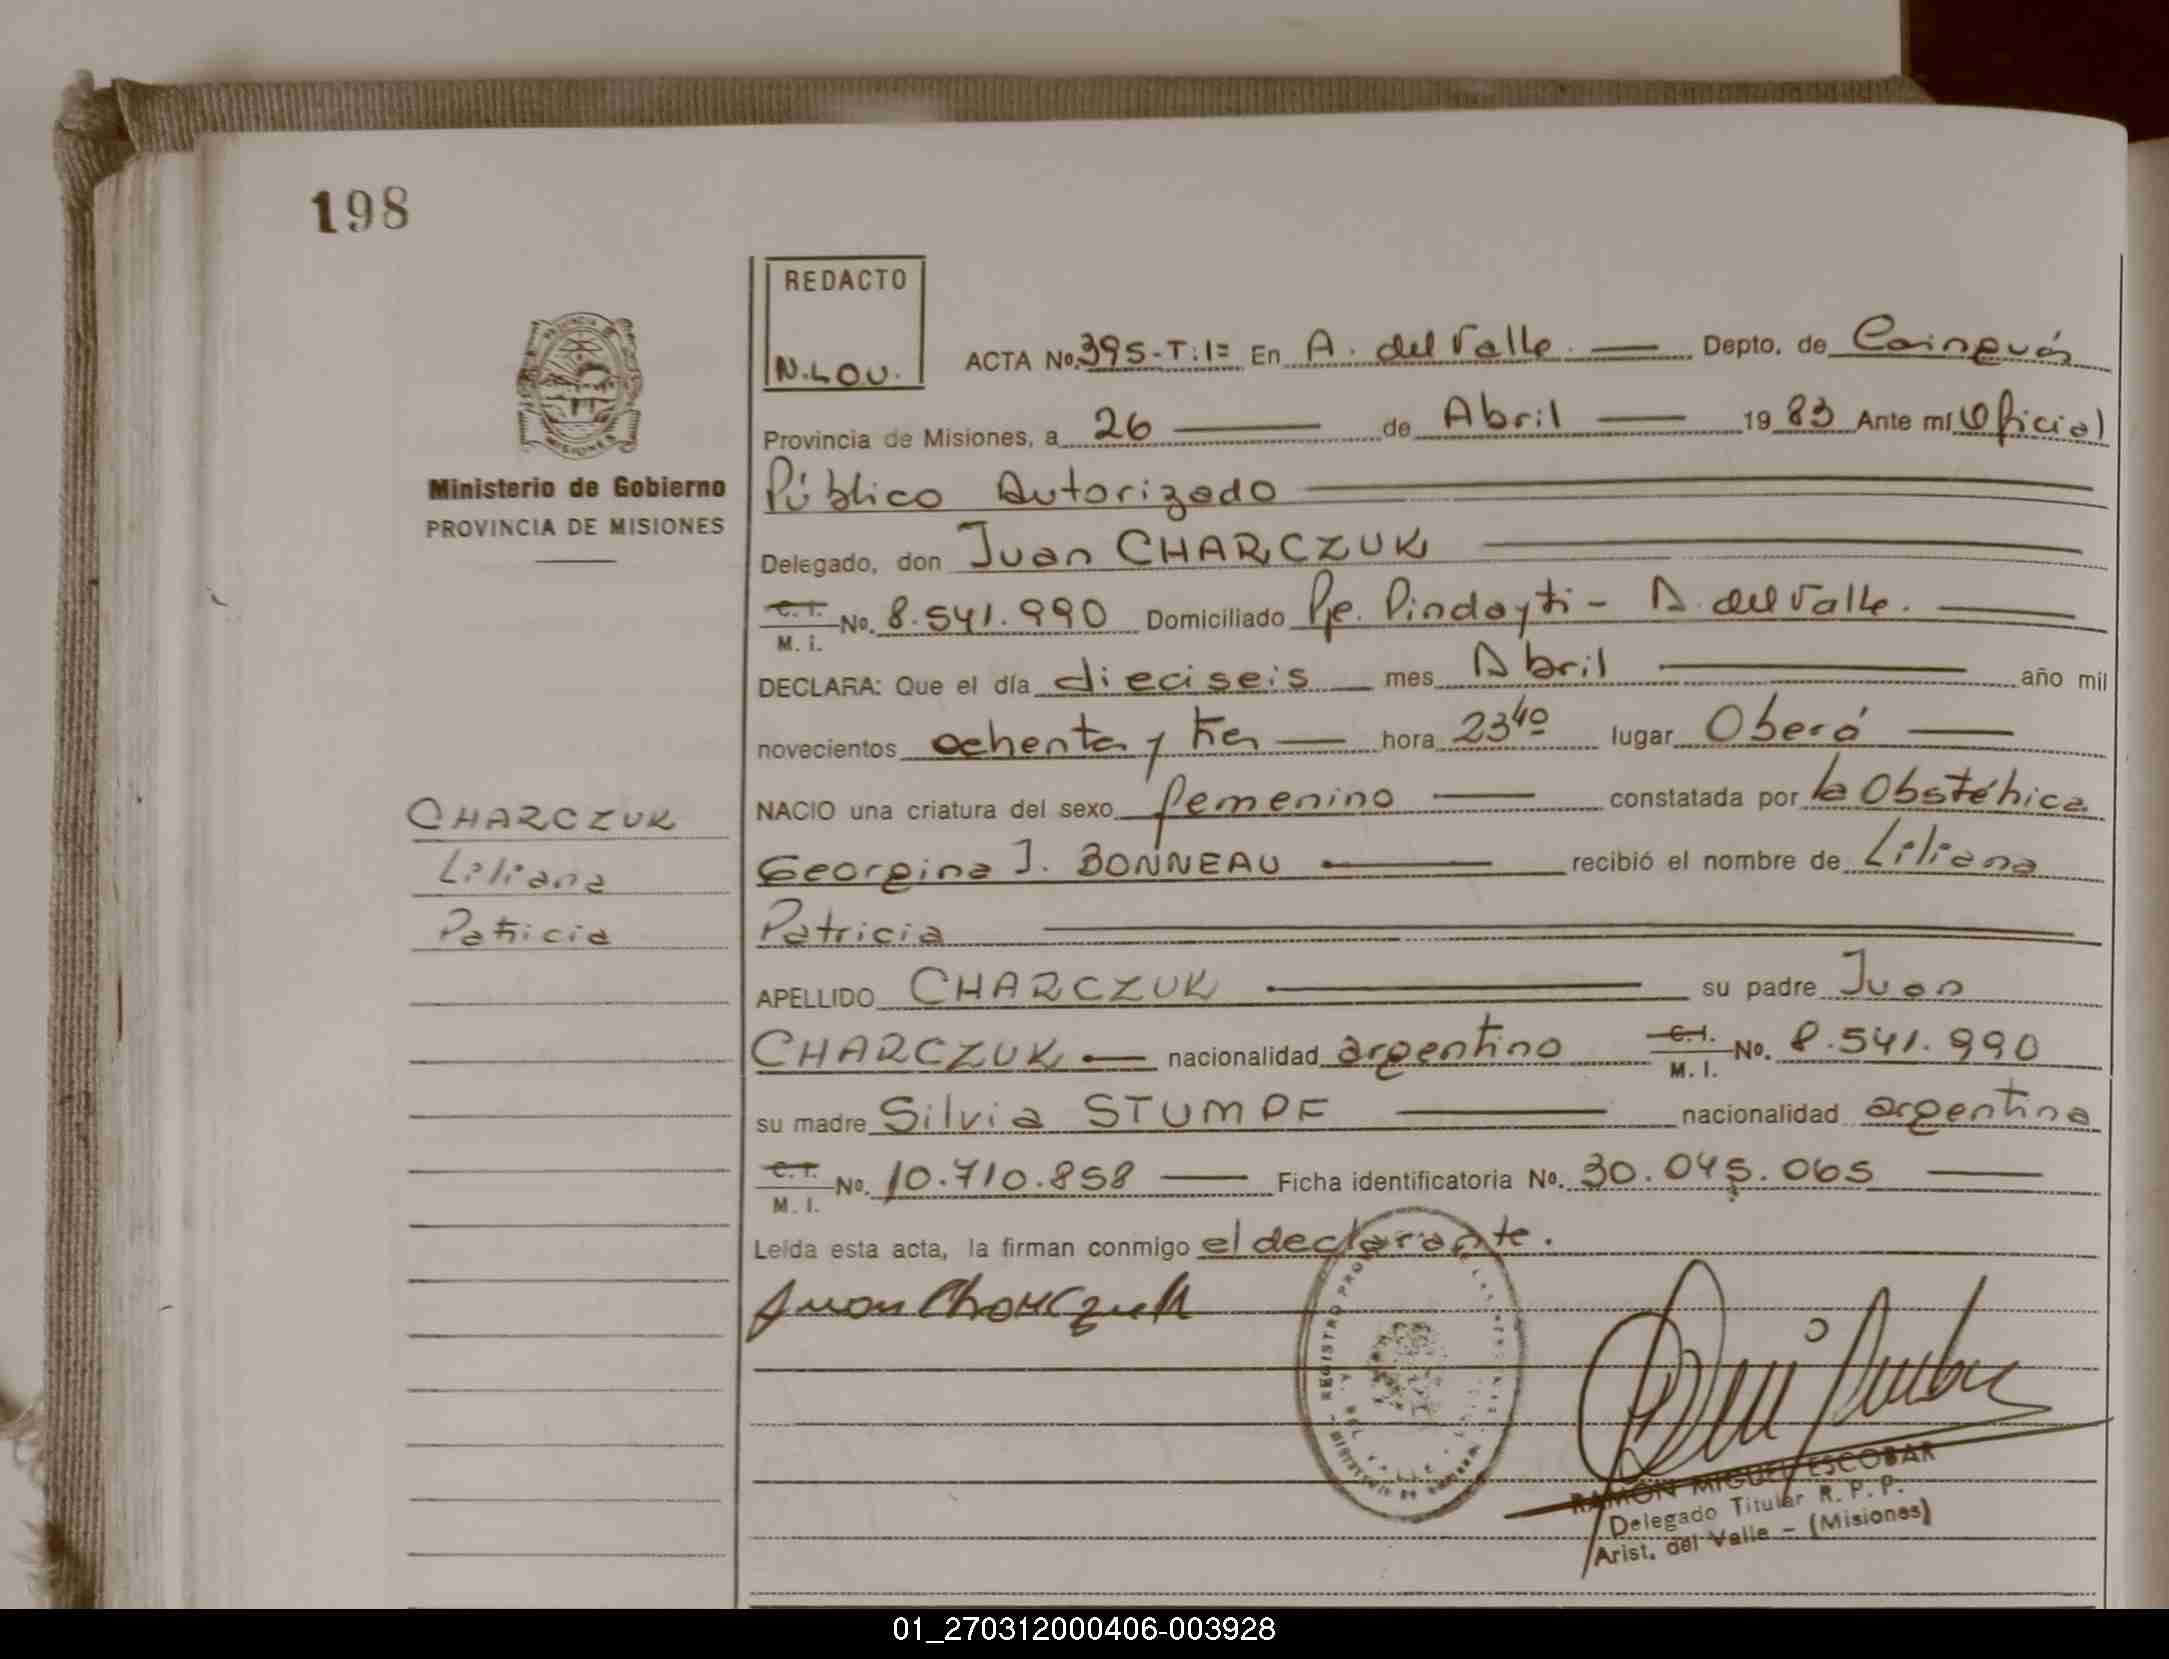 198
REDACTO
N.LOU.
ACTA No. 395-T:1= En A. del Valle. Depto. de Cainguás
Provincia de Misiones, a 26 de Abril 1983 Ante mí Oficial
Ministerio de Gobierno
PROVINCIA DE MISIONES
Público Autorizado
Delegado, don Juan CHARCZUK
C. I. M. I. No. 8.541.990 Domiciliado Pje. Pindayti - A. del Valle.
DECLARA: Que el día dieciseis mes Abril año mil
novecientos ochenta y tres hora 23 40 lugar Oberá
NACIO una criatura del sexo femenino constatada por la Obstétrica
Georgina J. BONNEAU recibió el nombre de Liliana
Patricia
CHARCZUK
Liliana
Patricia
APELLIDO CHARCZUK su padre Juan
CHARCZUK nacionalidad argentino C. I. M. I. No. 8.541.990
su madre Silvia STUMPF nacionalidad argentina
C. I. M. I. No. 10.710.858 Ficha identificatoria No. 30.045.065
Leída esta acta, la firman conmigo el declarante.
Juan Charczuk
RAMON MIGUEL ESCOBAR
Delegado Titular R. P. P.
Arist. del Valle - (Misiones)
01_270312000406-003928